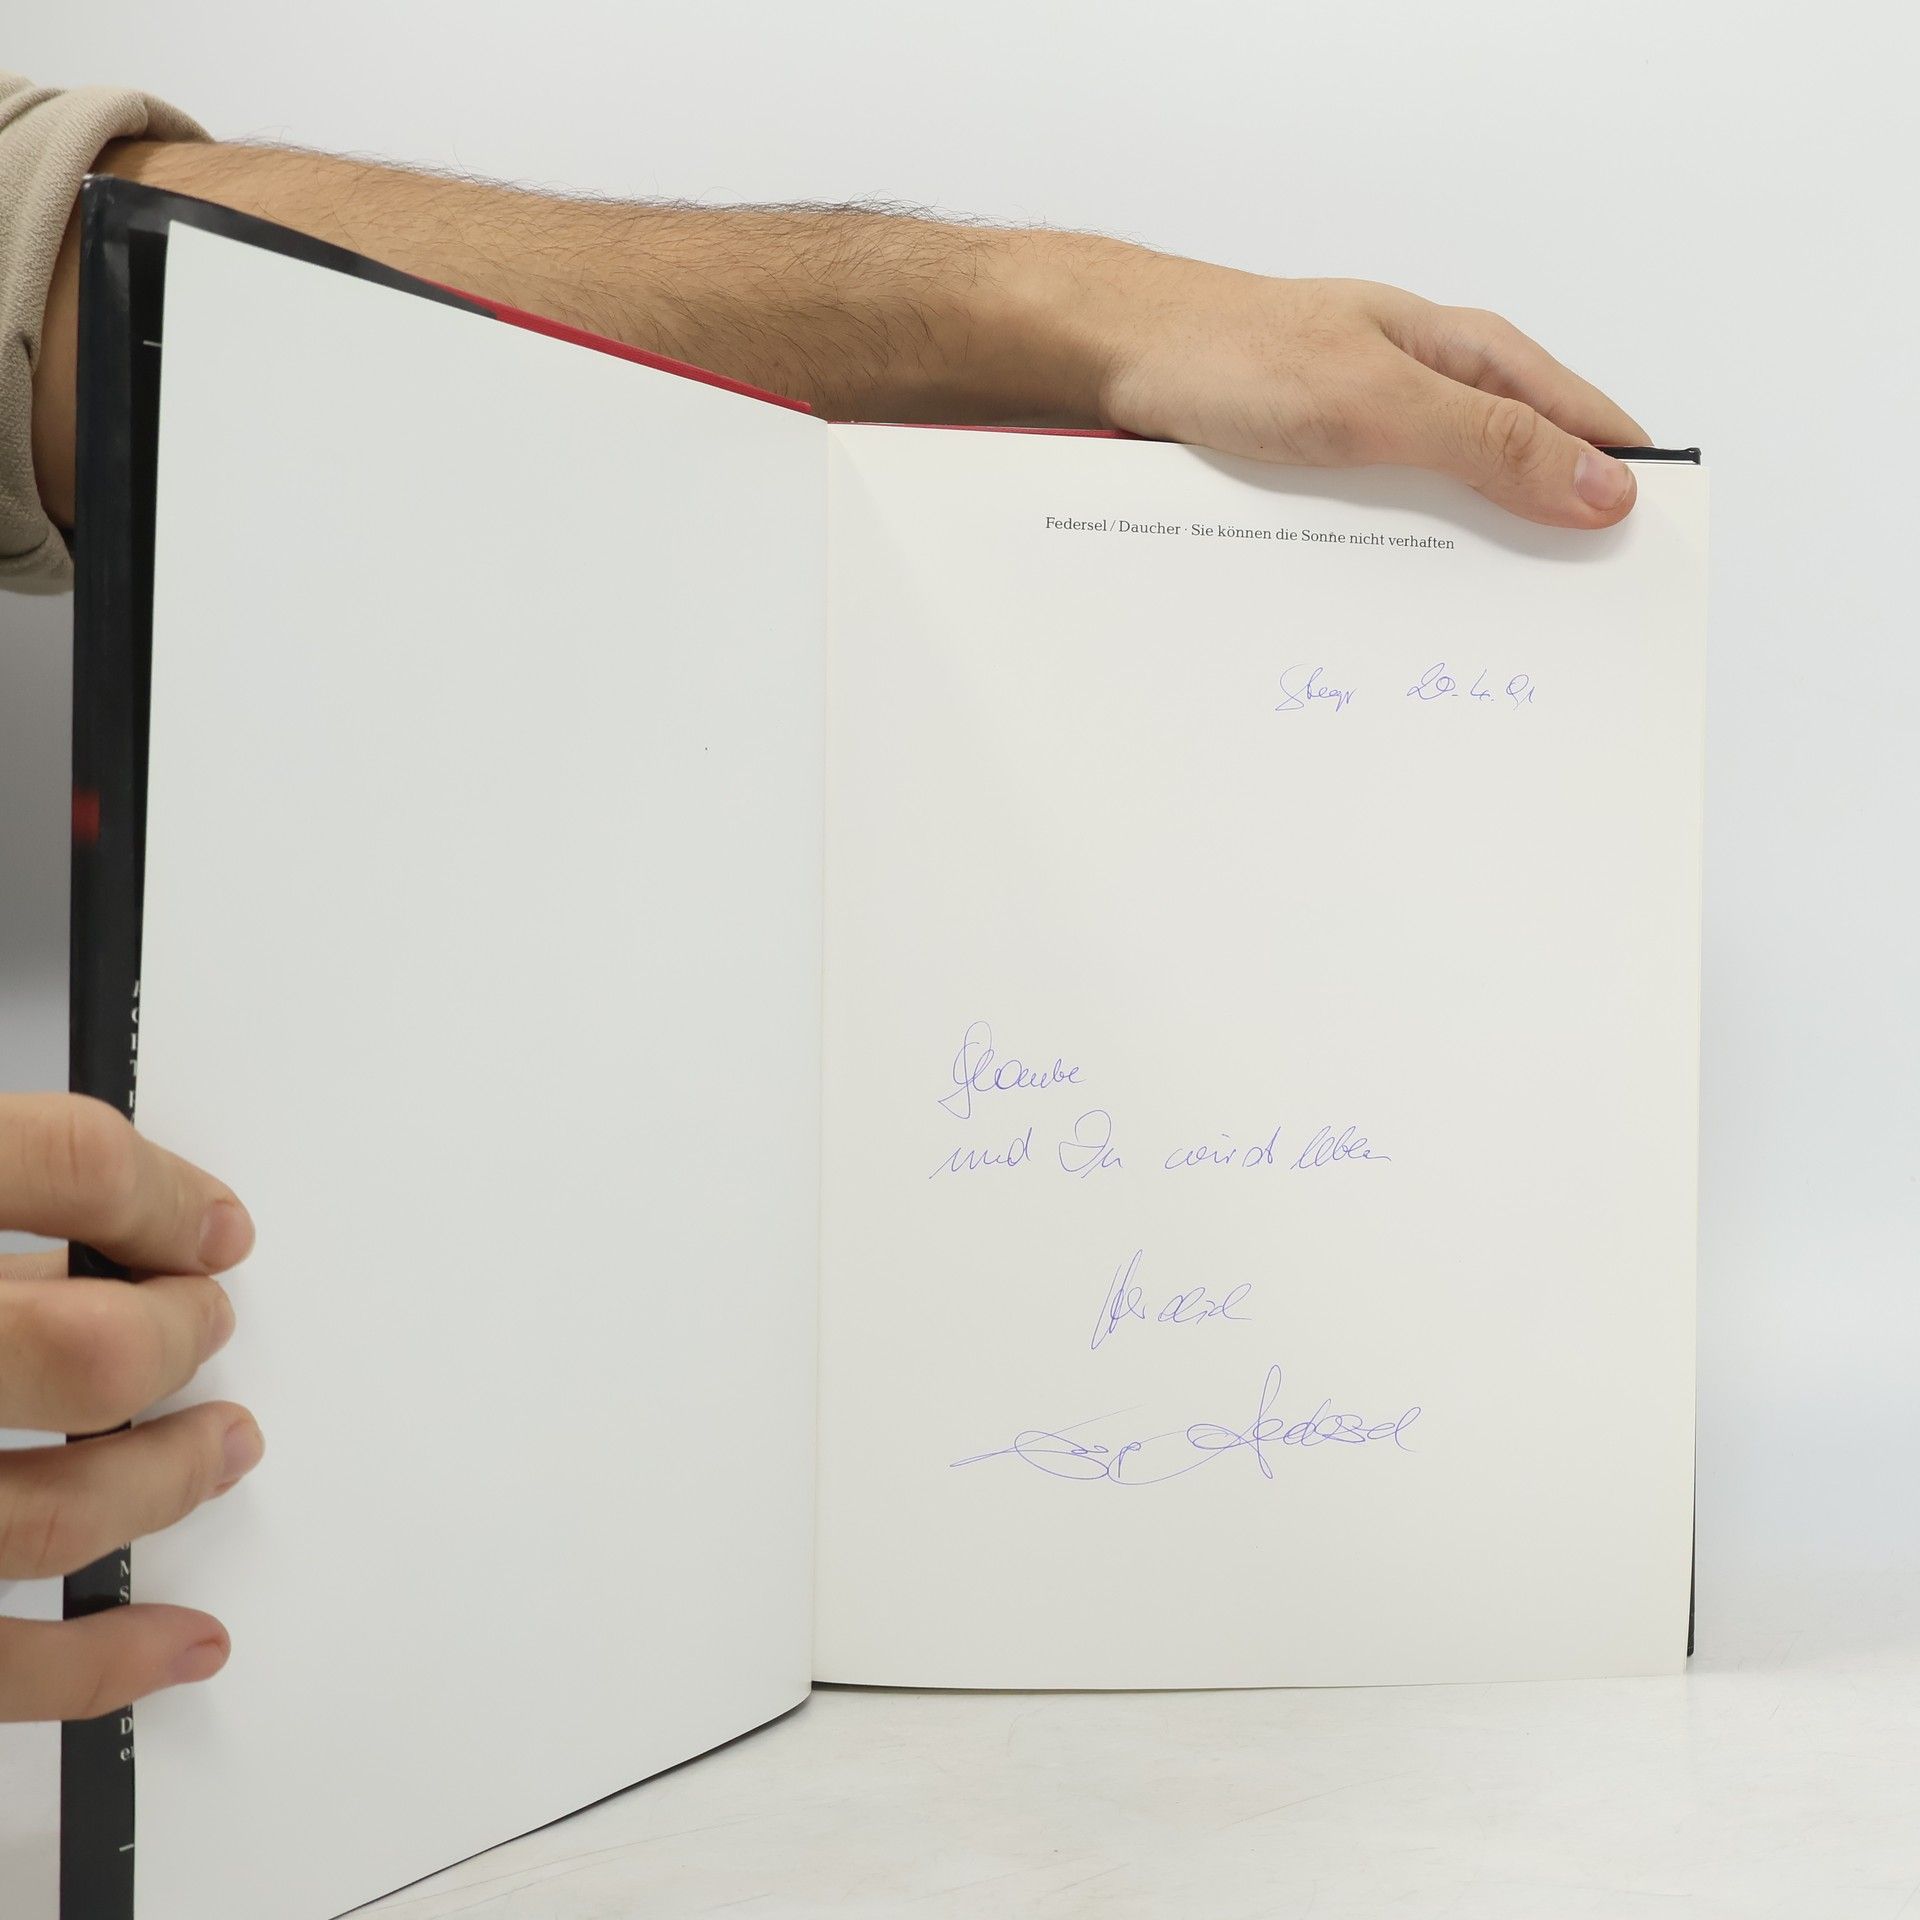 Federsel / Daucher · Sie können die Sonne nicht verhaften
Steyr 20.4.91
Glaube
und Du wirst leben
Herzlich
Federsel